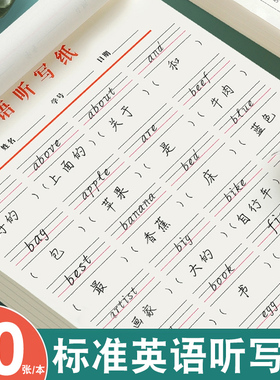 语听写纸
姓名 学号 日期
above about and
(上面的)(关于)(和)
apple are beef
的)(苹果)(是)(牛肉)
bag banana bed blue
(包)(香蕉)(床)(蓝色)
best big bike
(最)(大的)(自行车)
artist book
画家)(书)
egg
0张/本
标准英语听写